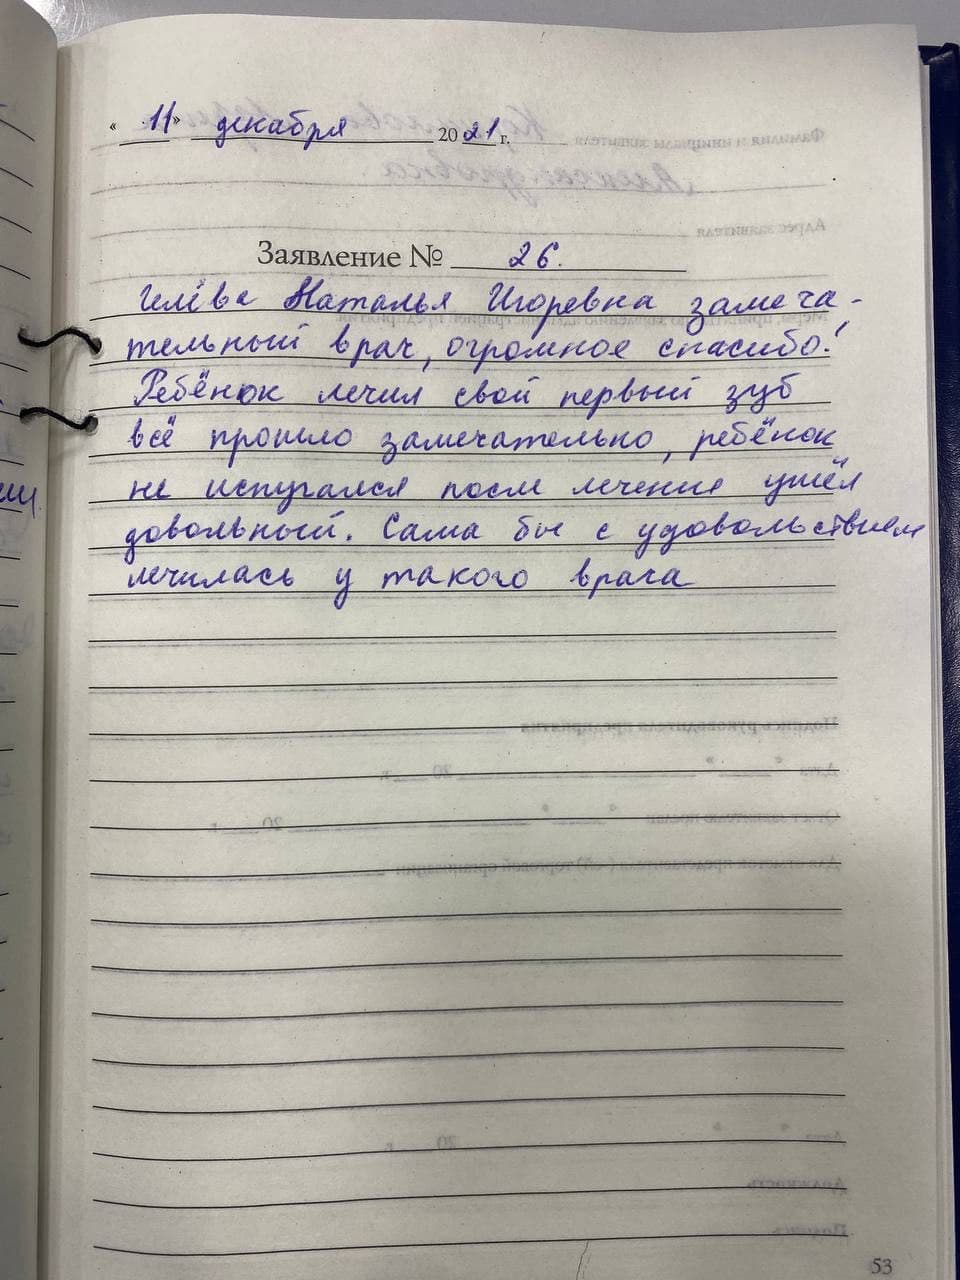 « 11 » декабря 2021 г.
Заявление № 26.
Наталья Игоревна замеча-
тельный врач, огромное спасибо!
Ребёнок лечил свой первый зуб
всё прошло замечательно, ребёнок
не испугался после лечение ушёл
довольный. Сама бы с удовольствием
лечилась у такого врача
53